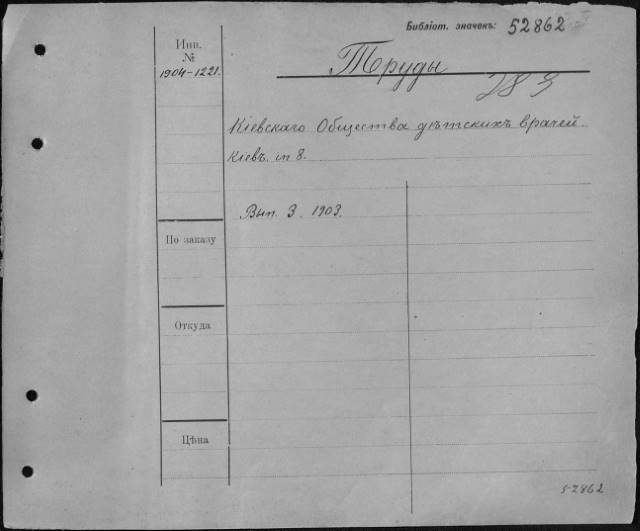 Библіот. значекъ: 52862
Инв.
№
1904-1221.
Труды
283
Кіевскаго Общества дѣтскихъ врачей.
Кіевъ. in 8.
Вып. 3. 1903.
По заказу
Откуда
Цѣна
52862